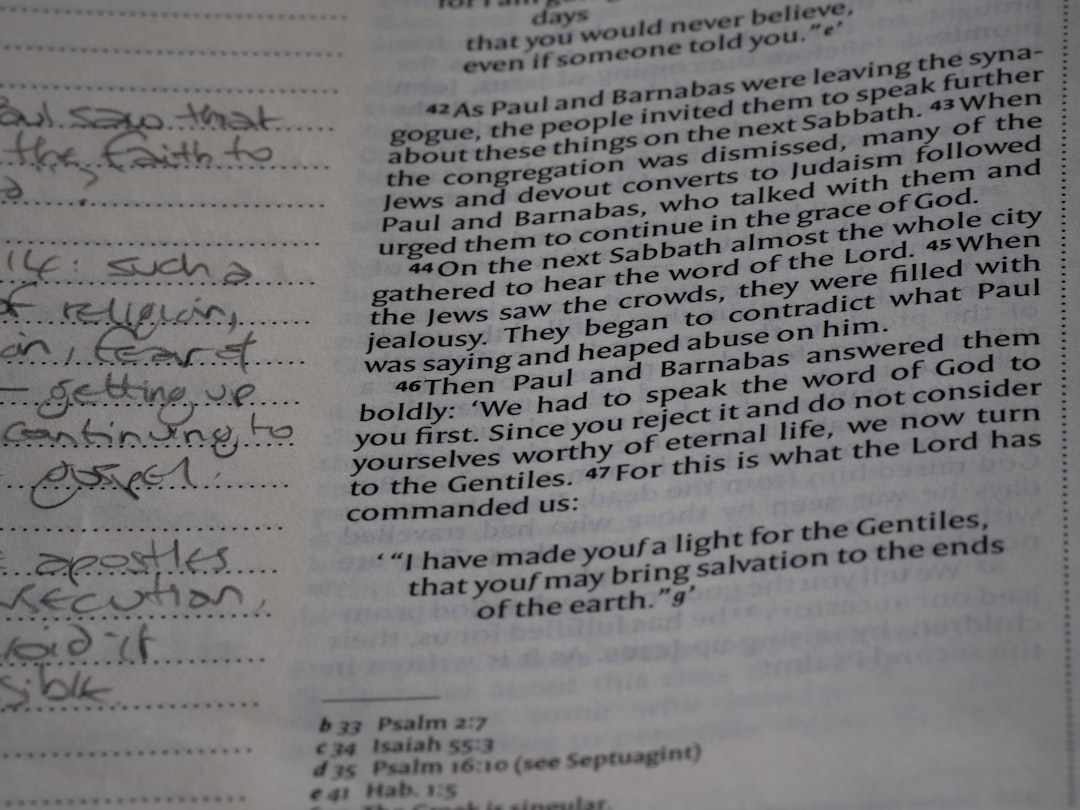 Paul saw that
the faith to
14: such a
of religion,
fear of
– getting up
continuing to
gospel.
apostles
days
that you would never believe,
even if someone told you.”e’
42 As Paul and Barnabas were leaving the syna-
gogue, the people invited them to speak further
about these things on the next Sabbath. 43 When
the congregation was dismissed, many of the
Jews and devout converts to Judaism followed
Paul and Barnabas, who talked with them and
urged them to continue in the grace of God.
44 On the next Sabbath almost the whole city
gathered to hear the word of the Lord. 45 When
the Jews saw the crowds, they were filled with
jealousy. They began to contradict what Paul
was saying and heaped abuse on him.
46 Then Paul and Barnabas answered them
boldly: ‘We had to speak the word of God to
you first. Since you reject it and do not consider
yourselves worthy of eternal life, we now turn
to the Gentiles. 47 For this is what the Lord has
commanded us:
‘ “I have made you f a light for the Gentiles,
that you f may bring salvation to the ends
of the earth.” g’
b 33 Psalm 2:7
c 34 Isaiah 55:3
d 35 Psalm 16:10 (see Septuagint)
e 41 Hab. 1:5
The Greek is singular.